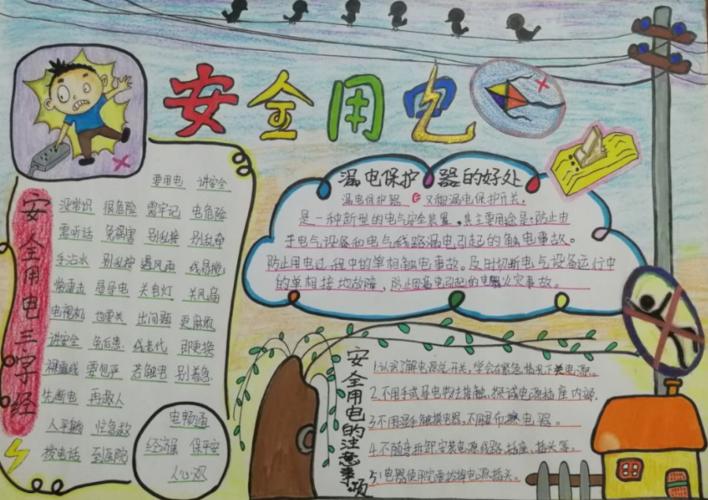 安全用电
安全用电三字经
要用电 讲安全
没常识 很危险 需牢记 电危险
需听话 免祸害 别乱接 别乱牵
手沾水 别乱擦 遇风雨 线易搅
关电灯 关风扇
电视机 也要关 出问题 更麻烦
讲安全 免后患 线老化 即更换
裸露线 要包严 若触电 别着急
先断电 再救人
人平躺 快急救
拨电话 到医院
电畅通
经济强 保平安
人人欢
漏电保护器的好处
漏电保护器 又称漏电保护开关,
是一种新型的电气安全装置。其主要用途是:防止由
于电气设备和电气线路漏电引起的触电事故。
防止用电过程中的单相触电事故。及时切断电气设备运行中
的单相接地故障,防止因漏电引起的电气火灾事故。
安全用电的注意事项
1.认识了解电源总开关,学会在紧急情况下关电源。
2.不用手或导电物往接触、探试电源插座内部。
3.不用湿手触摸电器,不用湿布擦电器。
4.不随意拆卸安装电源线路、插座、插头等。
5.电器使用完要拔掉电源插头。